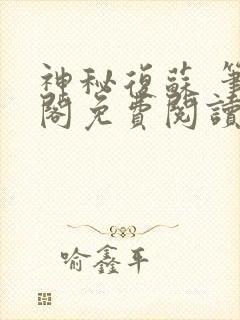 神秘復蘇 筆
閣免費閱讀
喻鑫平